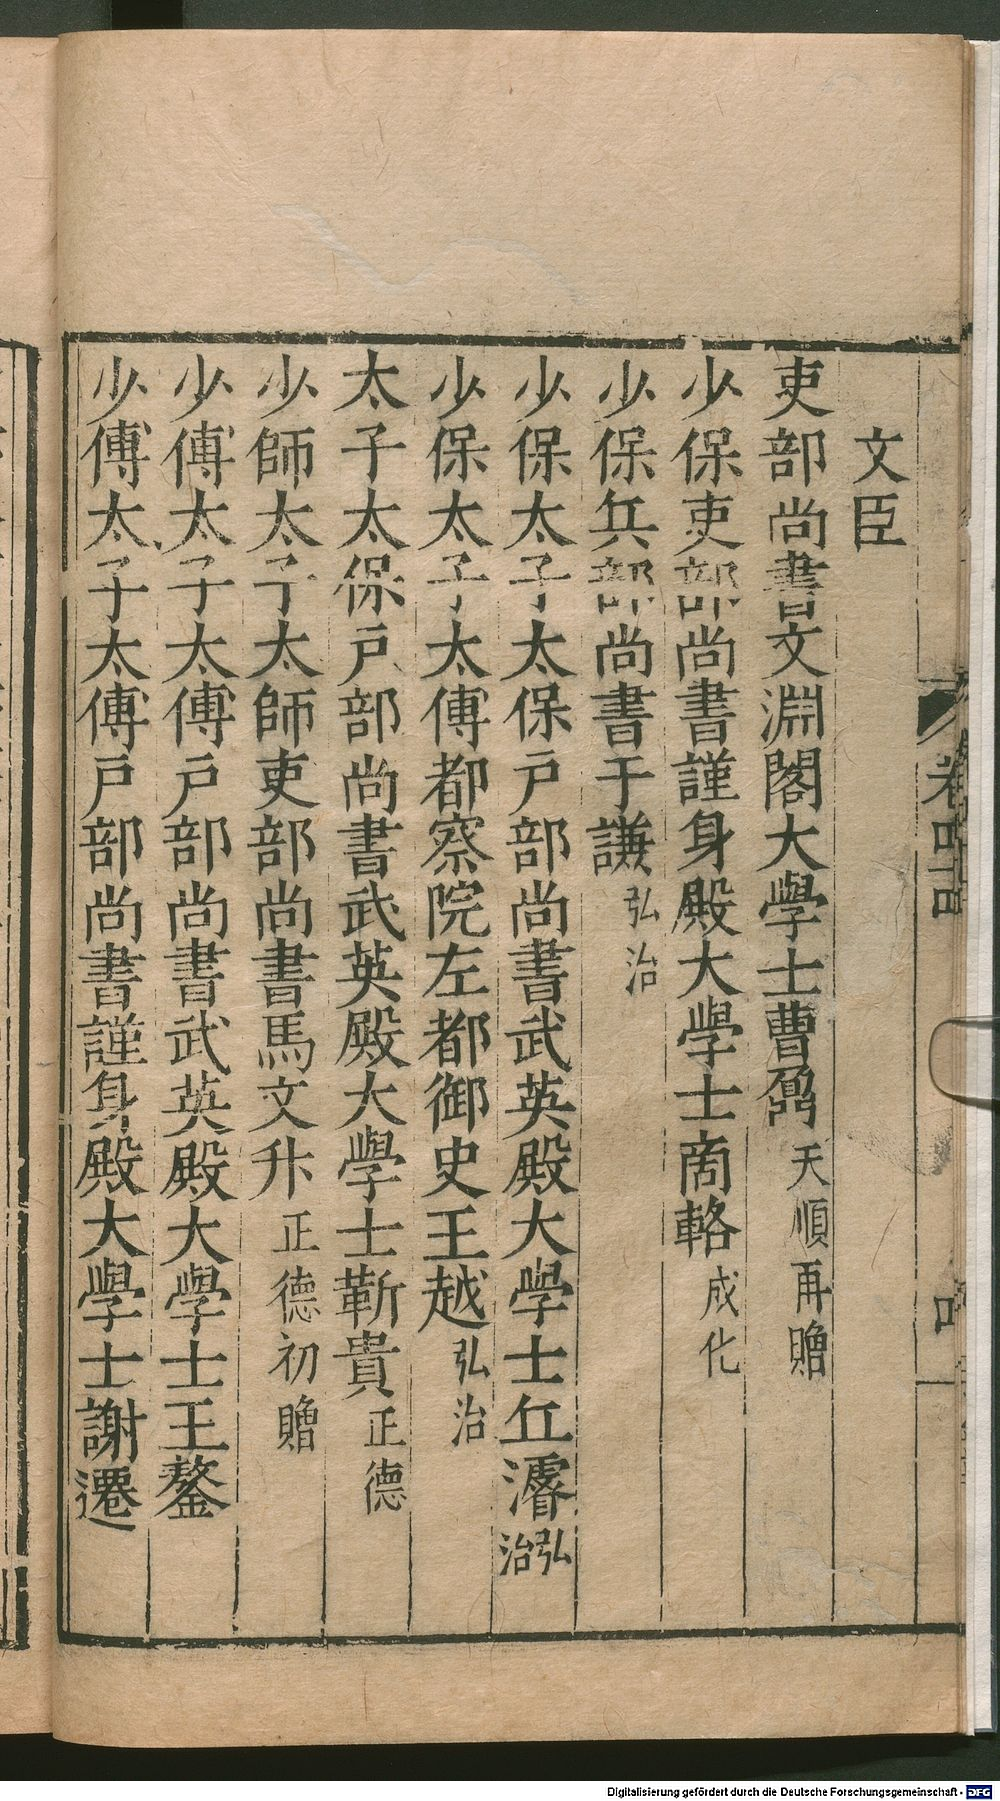 文臣
吏部尚書文淵閣大學士曹鼐天順再贈
少保吏部尚書謹身殿大學士商輅成化
少保兵部尚書于謙弘治
少保太子太保戶部尚書武英殿大學士丘濬弘治
少保太子太傅都察院左都御史王越弘治
太子太保戶部尚書武英殿大學士靳貴正德
少師太子太師吏部尚書馬文升正德初贈
少傅太子太傅戶部尚書武英殿大學士王鏊
少傅太子太傅戶部尚書謹身殿大學士謝遷
Digitalisierung gefördert durch die Deutsche Forschungsgemeinschaft - DFG